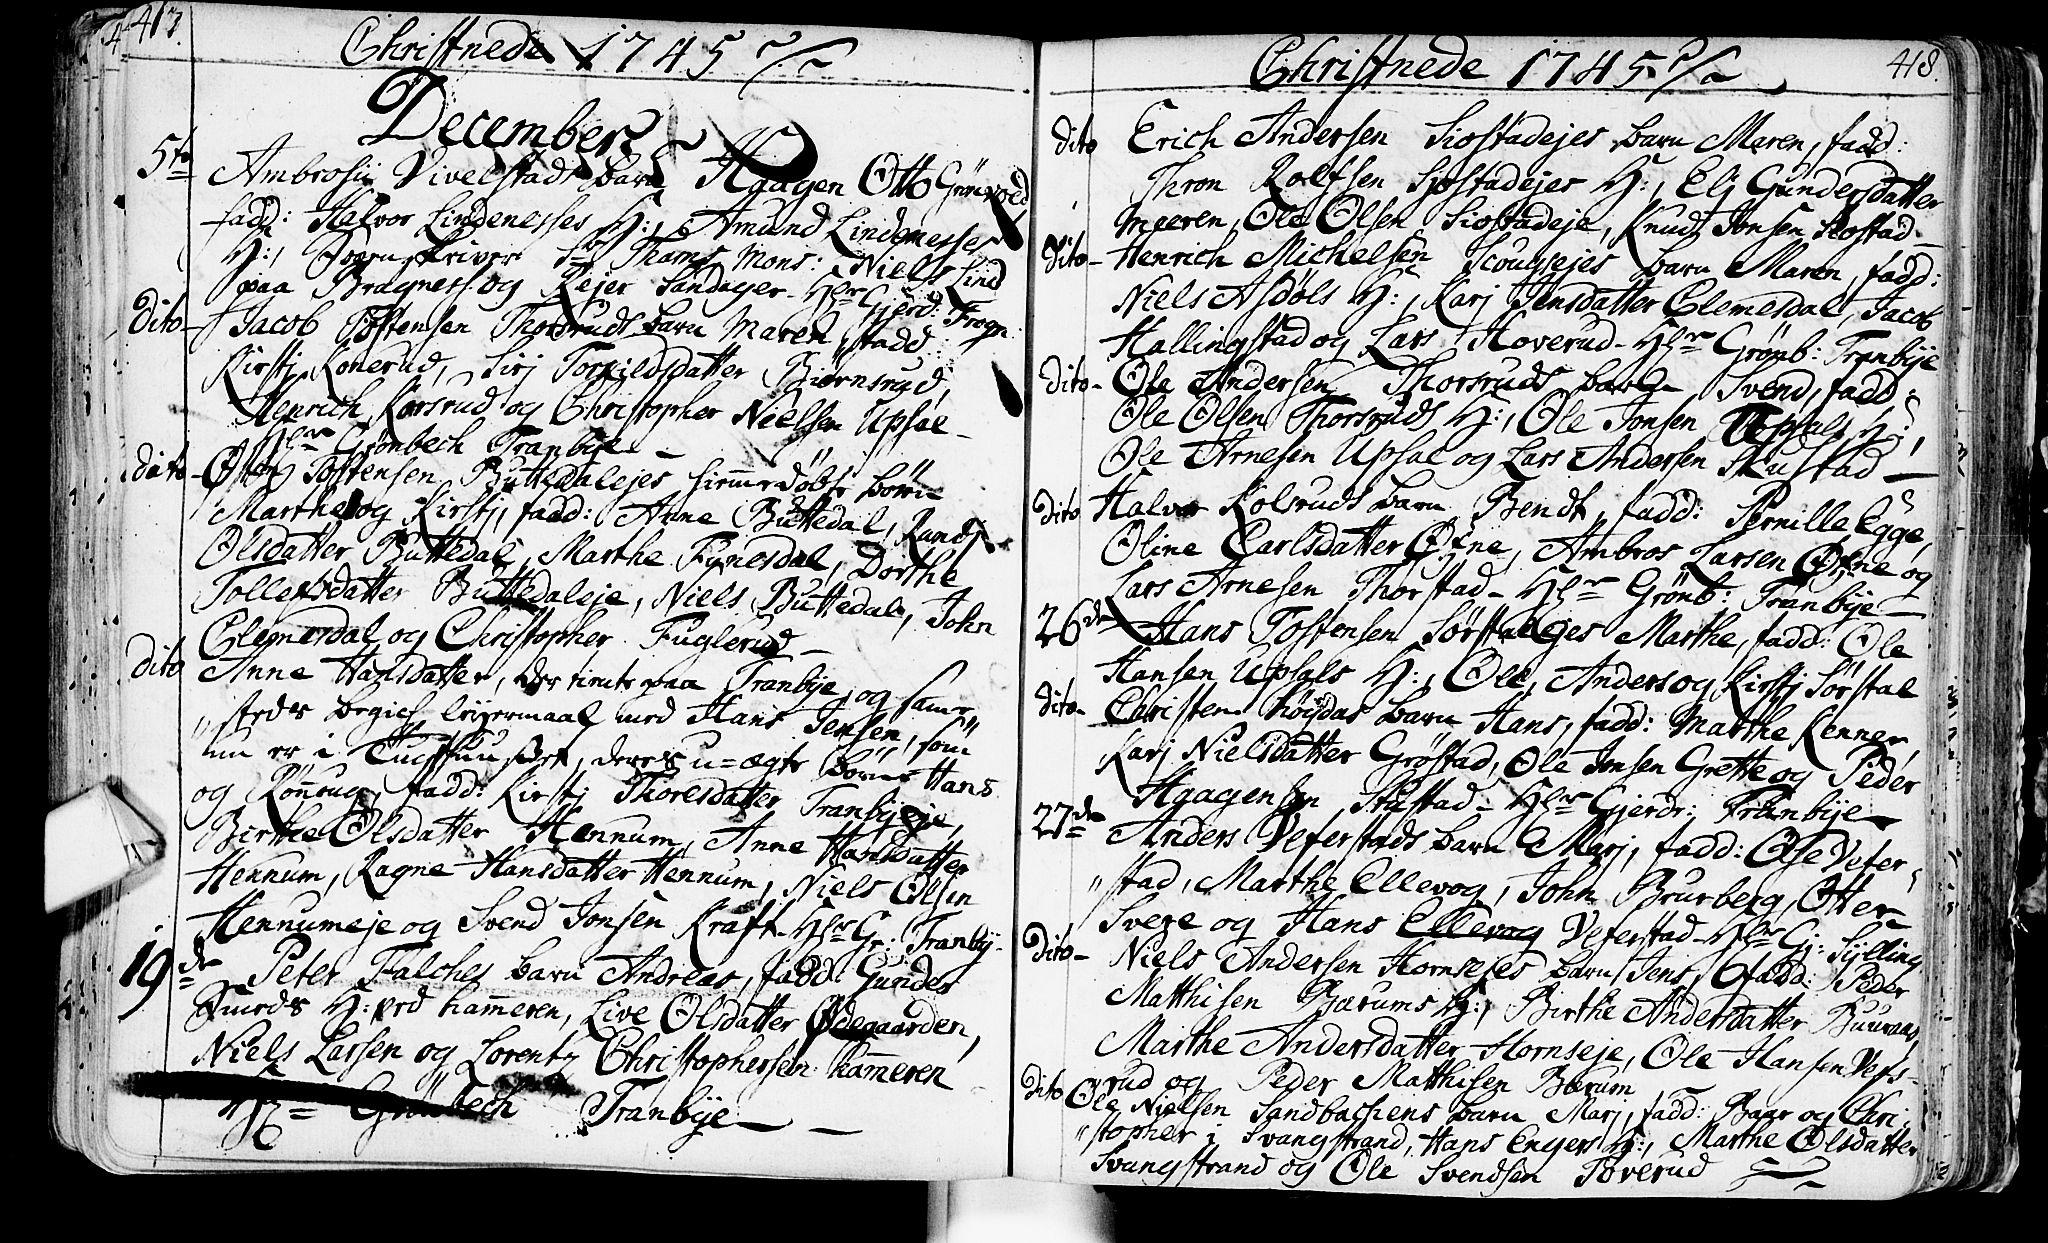 417.
Christnede 1745
December
5te Ambrosii Vivelstads barn Haagen Otto Grönvold
fadd: Halvor Lindenesses H:, Amund Lindenesses
H:, Sogenskriver Sr Thams, Mons: Niels Lind
paa Bragness og Rejer Sandager. Hlr Gjerd: Frogn:
Dito - Jacob Tostensen Thorsruds barn Maren, fadd:
Kirstj Konerud, Sirj Torkildsdatter Biörnsrud,
Henrich Korsrud og Christopher Nielsen Upsal -
Hlr Grönbech Tranbye -
dito - Tostensen Buttedalejes hiemmedöbte börn
Marthe og Kirstj, fadd: Anne Buttedal, Randj
Olsdatter Buttedal, Marthe Fynesdal, Dorthe
Tollefsdatter Buttedaleje, Niels Buttedal, John
Clemesdal og Christopher Fuglerud -
dito Anne Hansdatter, der tiente paa Tranbye, og samme
steds begick lejermaal med Hans Jensen, som
nu er i Tugthuuset, deres u-ægte börn Hans
og Rönnug, fadd: Kirstj Thoresdatter Tranbyeje,
Birthe Olsdatter Hennum, Anne Hansdatter
Hennum, Ragne Hansdatter Hennum, Niels Olsen
Hennumeje og Svend Jonsen Kraft - Hlr Gr: Tranby -
19de Peter Falches barn Andreas, fadd: Gunder
H: ved Kammeren, Live Olsdatter Ödegaarden,
Niels Larsen og Lorentz Christophersen Kammeren
Grönbech Tranbye -
418.
Christnede 1745
dito Erich Andersen Siostadejes barn Maren, fadd:
Thron Rolfsen Siostadejes H:, Eli Gundersdatter
Meeren, Ole Olsen Siostadeje, Knud Jonsen Siostad -
dito - Henrich Michelsen Scougsejes barn Maren, fadd:
Niels Asdöls H:, Karj Jensdatter Clemesdal, Jacob
Hallingstad og Lars Hoverud - Hlr Grönb: Tranbye
dito - Ole Andersen Thorsruds barn Svend, fadd:
Ole Olsen Thorsruds H:, Ole Jonsen Upsals H:,
Ole Arnesen Upsal og Lars Andersen Skustad -
dito Halvor Kolsruds barn Bendt, fadd: Pernille Egge,
Oline Carlsdatter Öene, Ambros Larsen og
Lars Arnesen Thorstad - Hlr Grönb: Tranbye -
26de Hans Tostensen Sörstalejes Marthe, fadd: Ole
Hansen Upsals H:, Ole, Anders og Kirstj Sörstal
dito - Christen barn Hans, fadd: Marthe Kenner,
Karj Nielsdatter Gröstad, Ole Jonsen Grette og Peder
Haagensen Skustad - Hlr Gjerdr: Tranbye -
27de Anders Veferstads barn Marj, fadd: Ose Vefer-
stad, Marthe Ellevog, John Brurberg, Otter
Sveze og Hans Ellevog Veferstad - Hlr Gj: Sylling
dito - Niels Andersen Hornsejes barn Jens, fadd: Peder
Matthisen Bærums H:, Birthe Andersdatter Buuraas,
Marthe Andersdatter Hornseje, Ole Hansen Vefs-
rud og Peder Matthisen Bærum
dito Ole Nielsen Sandbachens barn Marj, fadd: Baar og Chri-
stopher i Svangstrand, Hans Engers H:, Marthe Olsdatter
Svangstrand og Ole Svendsen Toverud